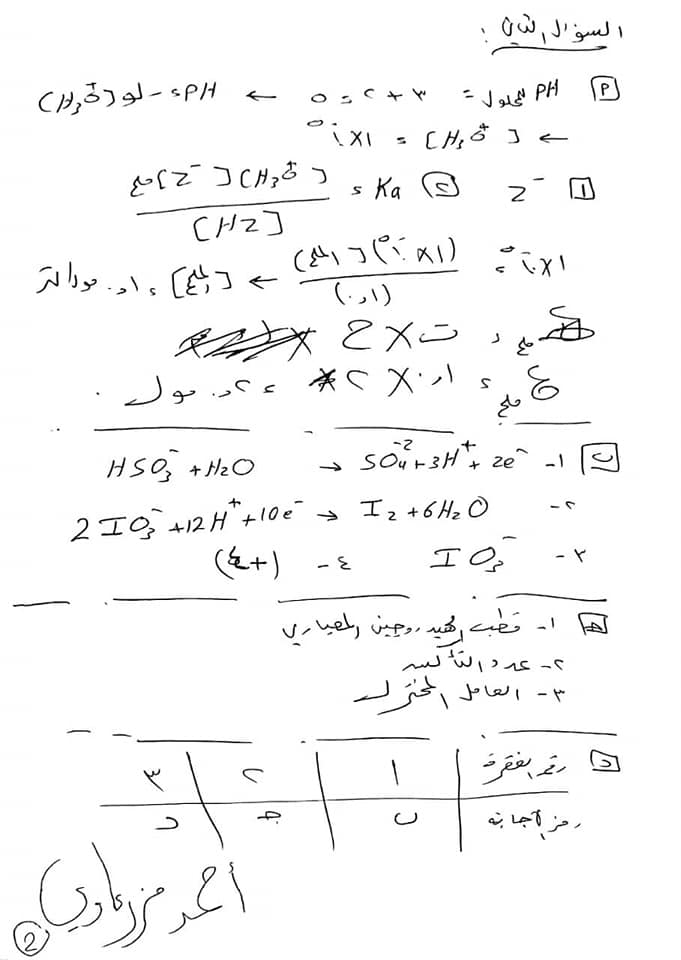 السؤال الثاني :
أ PH المحلول = ٣ + ٢ = ٥ ← PH = - لو [H₃O⁺]
← [H₃O⁺] = ١×١٠⁻⁵
١ Z⁻ ٢ Ka = [H₃O⁺][Z⁻]ملح / [HZ]
١×١٠⁻⁵ = (١×١٠⁻⁵)[الملح] / (٠,١) ← [الملح] = ٠,١ مول/لتر
ع ملح = ت × ح
ع ملح = ٠,١ × ٢ = ٠,٢ مول .
ب ١- HSO₃⁻ + H₂O → SO₄⁻² + 3H⁺ + 2e⁻
٢- 2IO₃⁻ + 12H⁺ + 10e⁻ → I₂ + 6H₂O
٣- IO₃⁻ ٤- (+٤)
١- قطب الهيدروجين المعياري
٢- عدد التأكسد
٣- العامل المختزل
د رقم الفقرة ١ ٢ ٣
رمز الإجابة ب ج د
أحمد
2